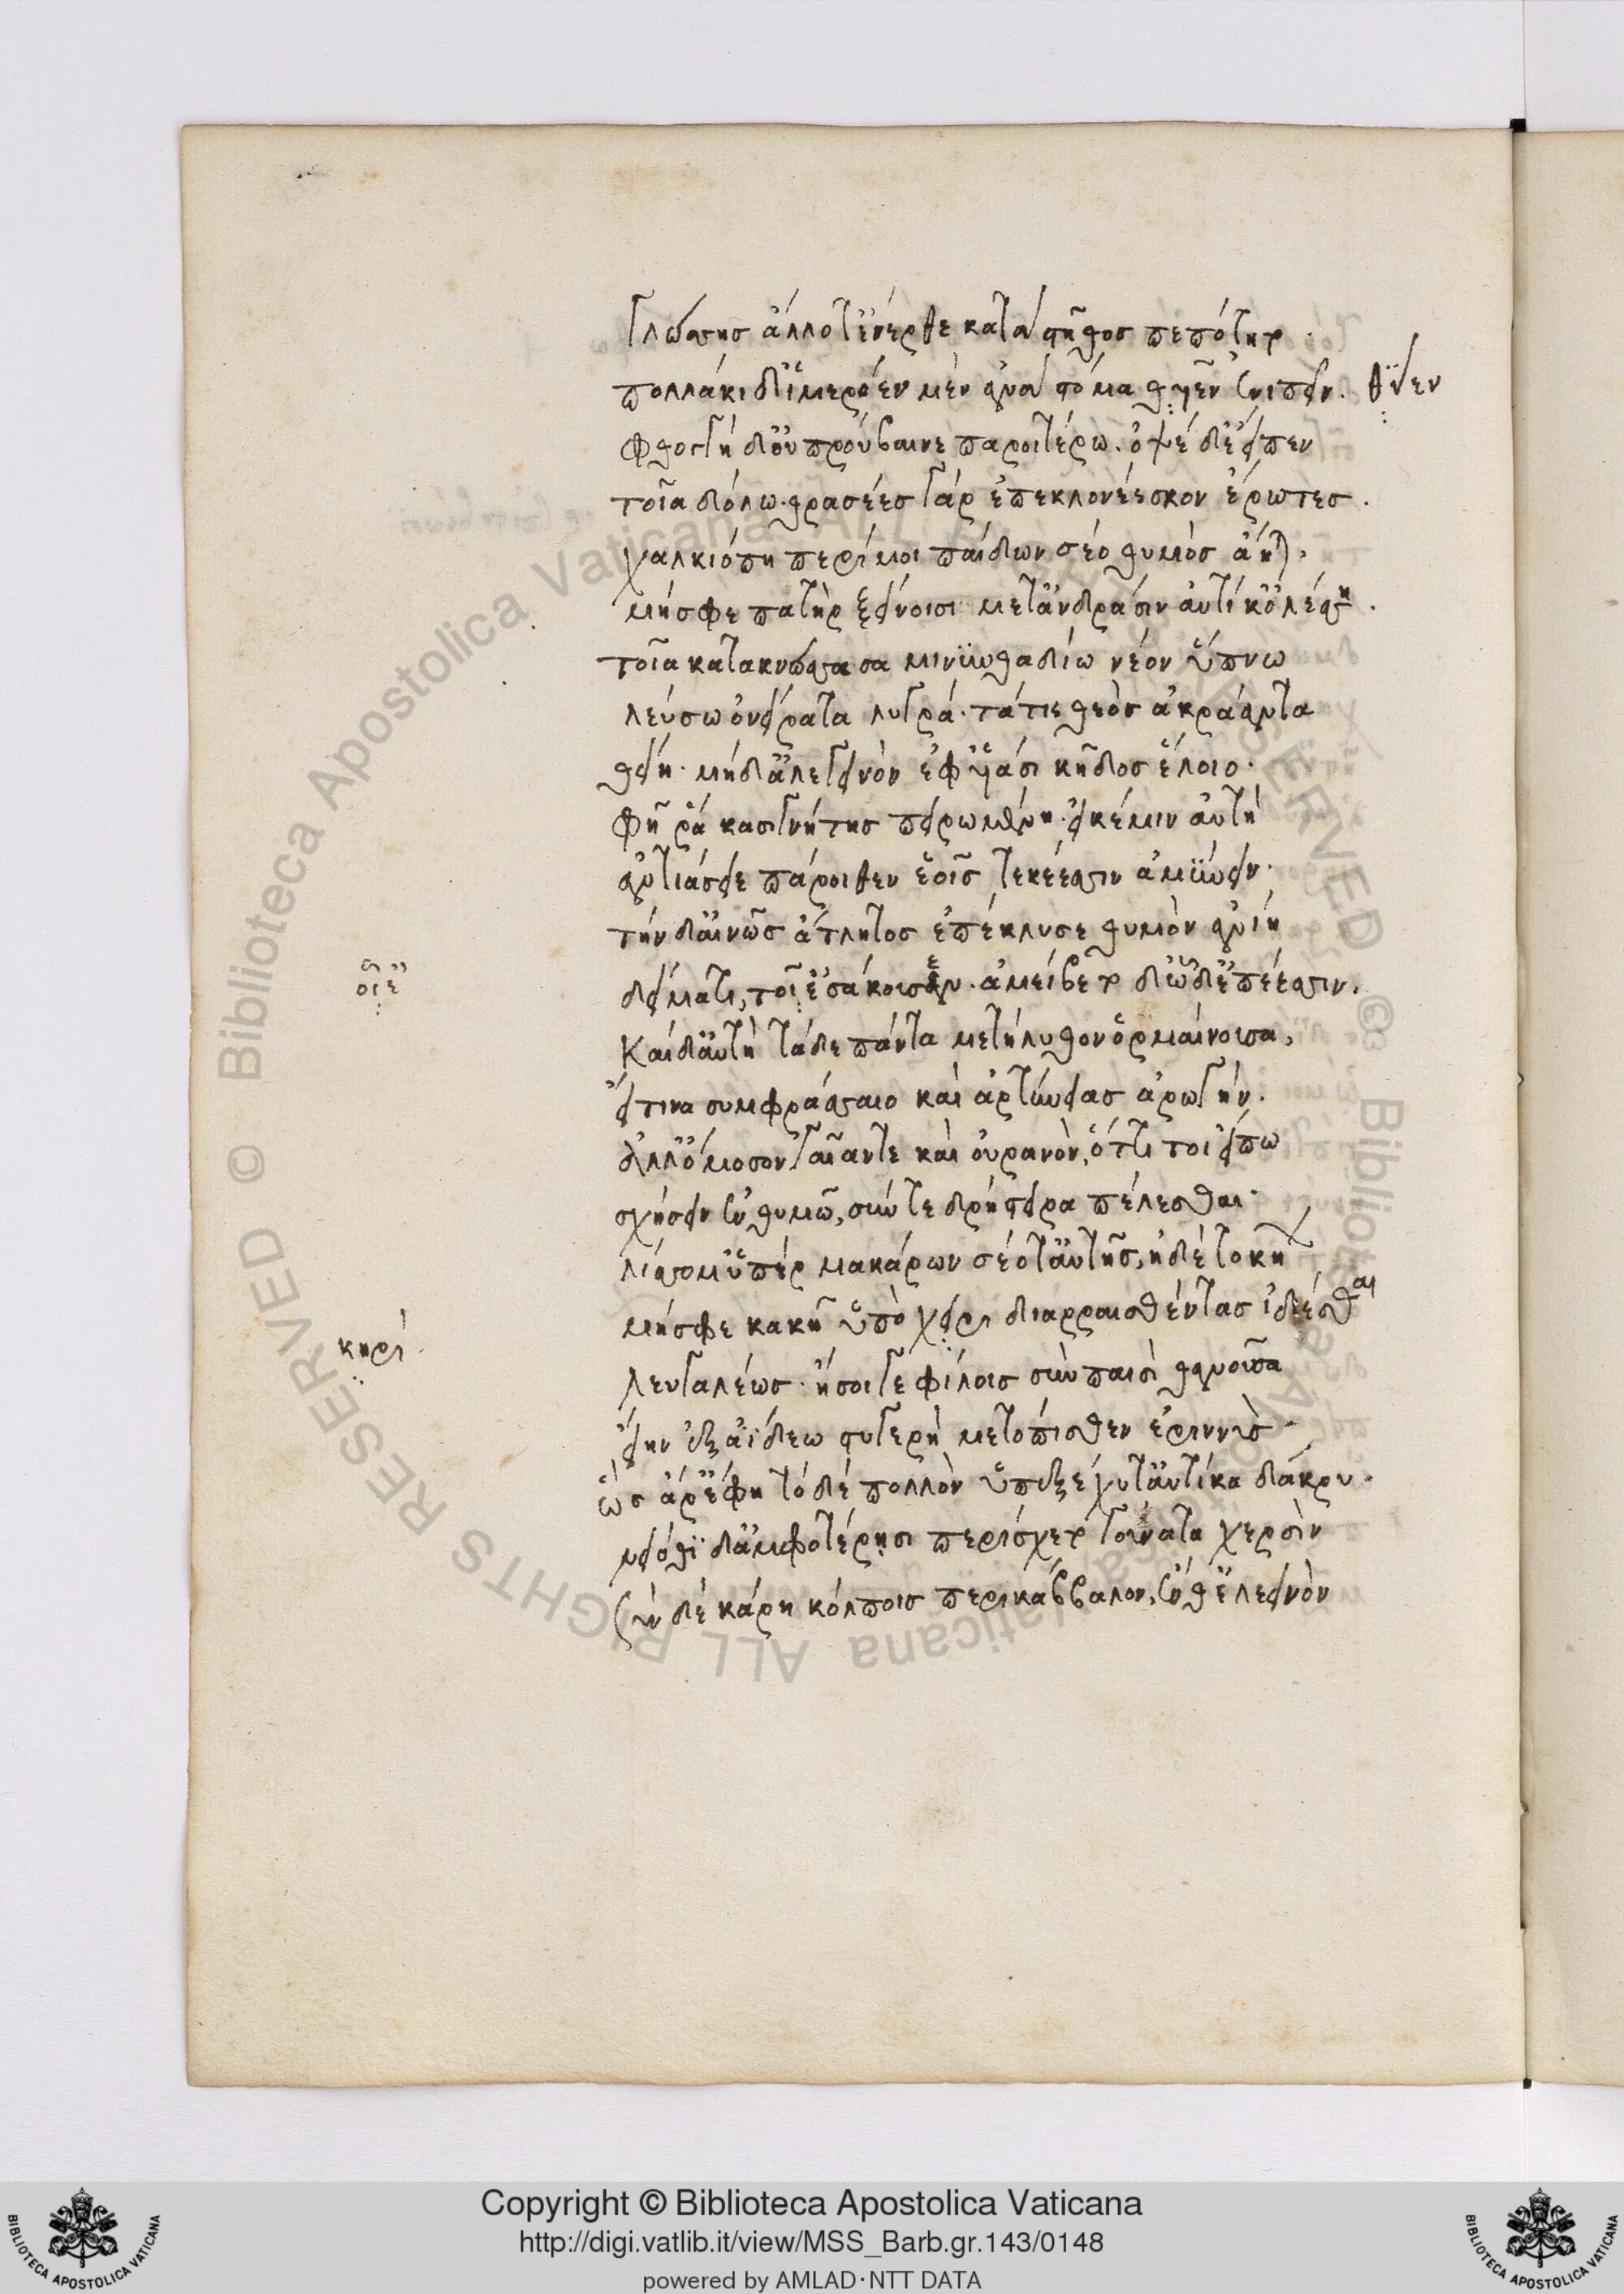 γλώσσης ἄλλοτ' ἔνερθε κατὰ στῆθος πεπότητο·
πολλάκι δ' ἱμερόεν μὲν ἀνὰ στόμα θυῖεν ἐνισπεῖν. θύϊεν
φθογγῇ δ' οὐ προὔβαινε παροιτέρω. ὀψὲ δ' ἔειπεν
τοῖα δόλω· θρασέες γὰρ ἐπεκλονέεσκον ἔρωτες.
χαλκιόπη περί μοι παίδων σέο θυμὸς ἄηται,
μή σφε πατὴρ ξείνοισι μετ' ἀνδράσιν αὐτίκ' ὀλέσση.
τοῖα κατακνώσσασα μινυνθαδίω νέον ὕπνω
λεύσω ὀνείρατα λυγρά· τά τις θεὸς ἀκράαντα
θείη· μήδ' ἀλεγεινὸν ἐφ' υἱάσι κῆδος ἕλοιο·
φῆ ῥα κασιγνήτης πειρωμένη· εἴ κέ μιν αὐτὴ
ἀντιάσειε πάροιθεν ἑοῖς τεκέεσσιν ἀμύνειν·
τὴν δ' αἰνῶς ἄτλητος ἐπέκλυσε θυμὸν ἀνίη
δείματι, τοῖ' ἐσάκουσεν. ἀμείβετο δ' ὧδ' ἐπέεσσιν.
οἷ' ἐ
Καὶ δ' αὐτὴ τάδε πάντα μετήλυθον ὁρμαίνουσα,
εἴ τινα συμφράσσαιο καὶ ἀρτύνειας ἀρωγήν.
ἀλλ' ὄμοσον γαῖάν τε καὶ οὐρανὸν, ὅττι τοι εἴπω
σχήσειν ἐν θυμῶ, σύν τε δρήστειρα πέλεσθαι·
λίσσομ' ὑπὲρ μακάρων σέο τ' αὐτῆς, ἠδὲ τοκήων
μή σφε κακῇ ὑπὸ χειρὶ διαρραισθέντας ἰδέσθαι
κηρὶ
λευγαλέως· ἢ σοί γε φίλοις σὺν παισὶ θανοῦσα
εἴην ἐξ ἀΐδεω στυγερὴ μετόπισθεν ἐριννὺς
ὣς ἄρ' ἔφη τὸ δὲ πολλὸν ὑπεξέχυτ' αὐτίκα δάκρυ.
νειόθι δ' ἀμφοτέρῃσι περίσχετο γούνατα χερσὶν
σὺν δὲ κάρη κόλποις περικάββαλον, ἔνθ' ἐλεεινὸν
Copyright © Biblioteca Apostolica Vaticana
http://digi.vatlib.it/view/MSS_Barb.gr.143/0148
powered by AMLAD·NTT DATA